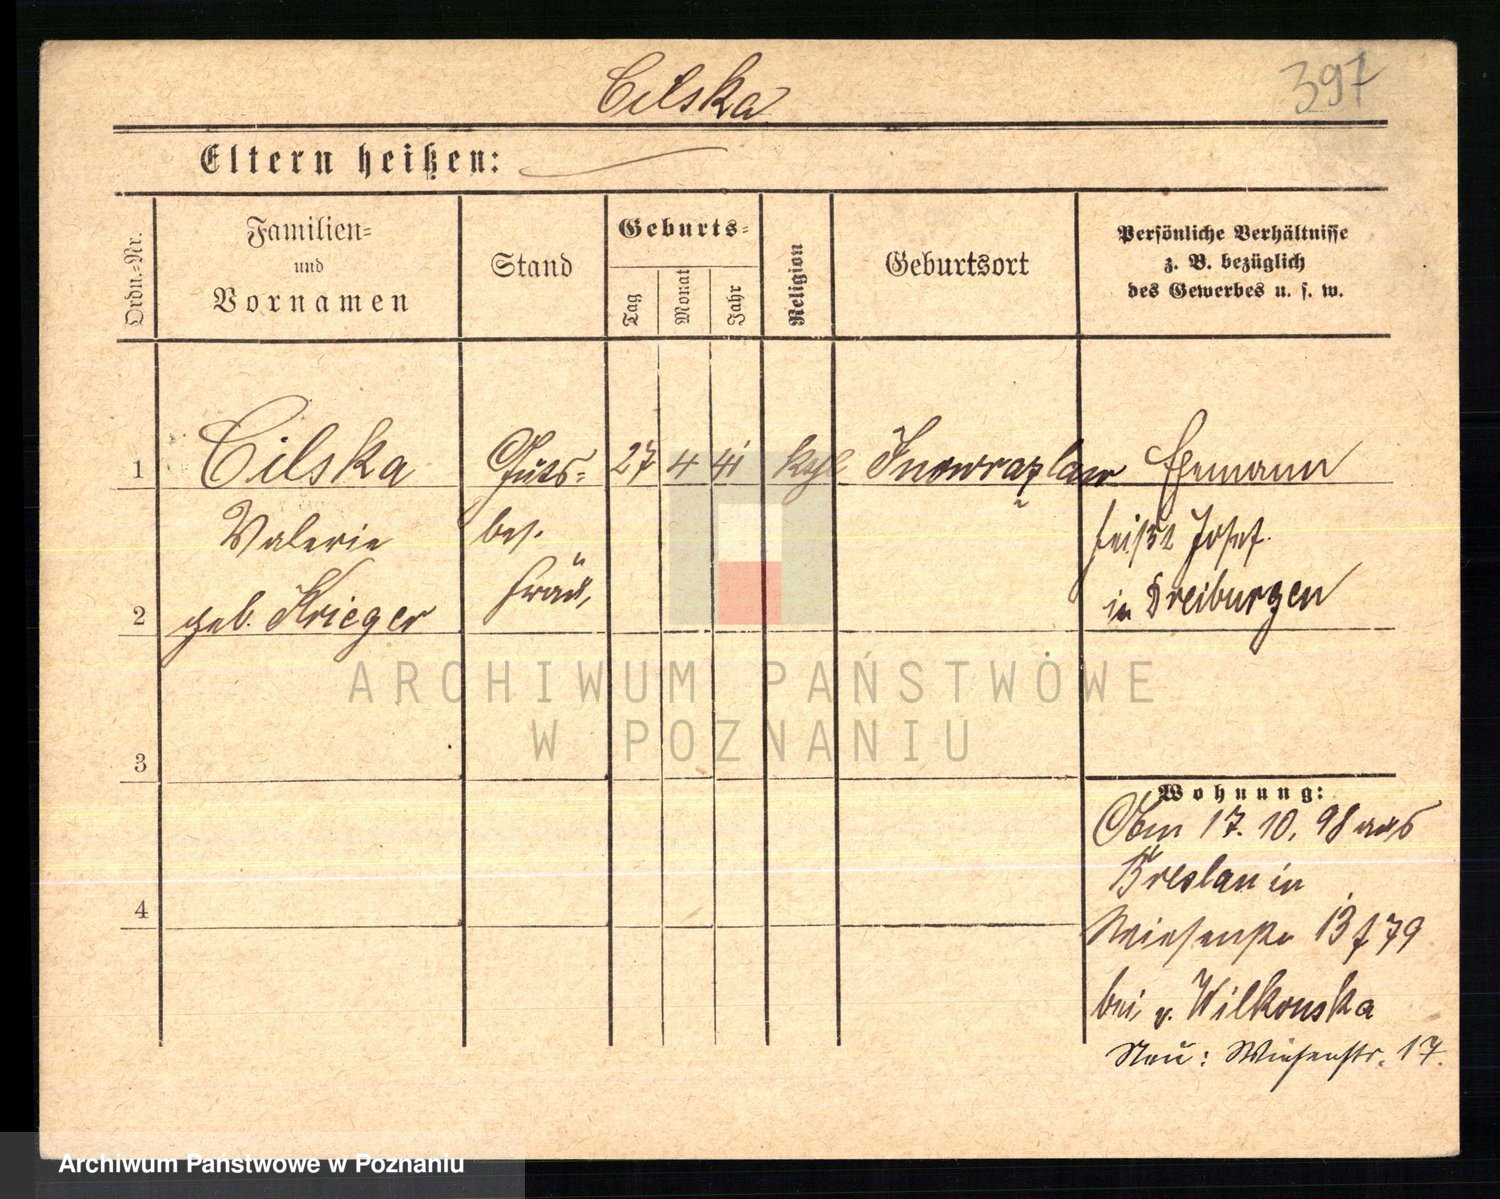 Cilska
397
Eltern heißen:
Ordn.-Nr.
Familien-
und
Vornamen
Stand
Geburts-
Tag
Monat
Jahr
Religion
Geburtsort
Persönliche Verhältnisse
z. B. bezüglich
des Gewerbes u. s. w.
1
Cilska
Guts-
27
4
41
kath
Inowrazlaw
Ehemann
Valerie
bes.
heißt Josef
2
geb. Krieger
Frau,
in Dreiburgen
ARCHIWUM PAŃSTWOWE
W POZNANIU
3
Wohnung:
Am 17. 10. 98 aus
Breslau in
4
Wiesenstr 13 79
bei v. Wilkonska
Neu: Wiesenstr. 17.
Archiwum Państwowe w Poznaniu